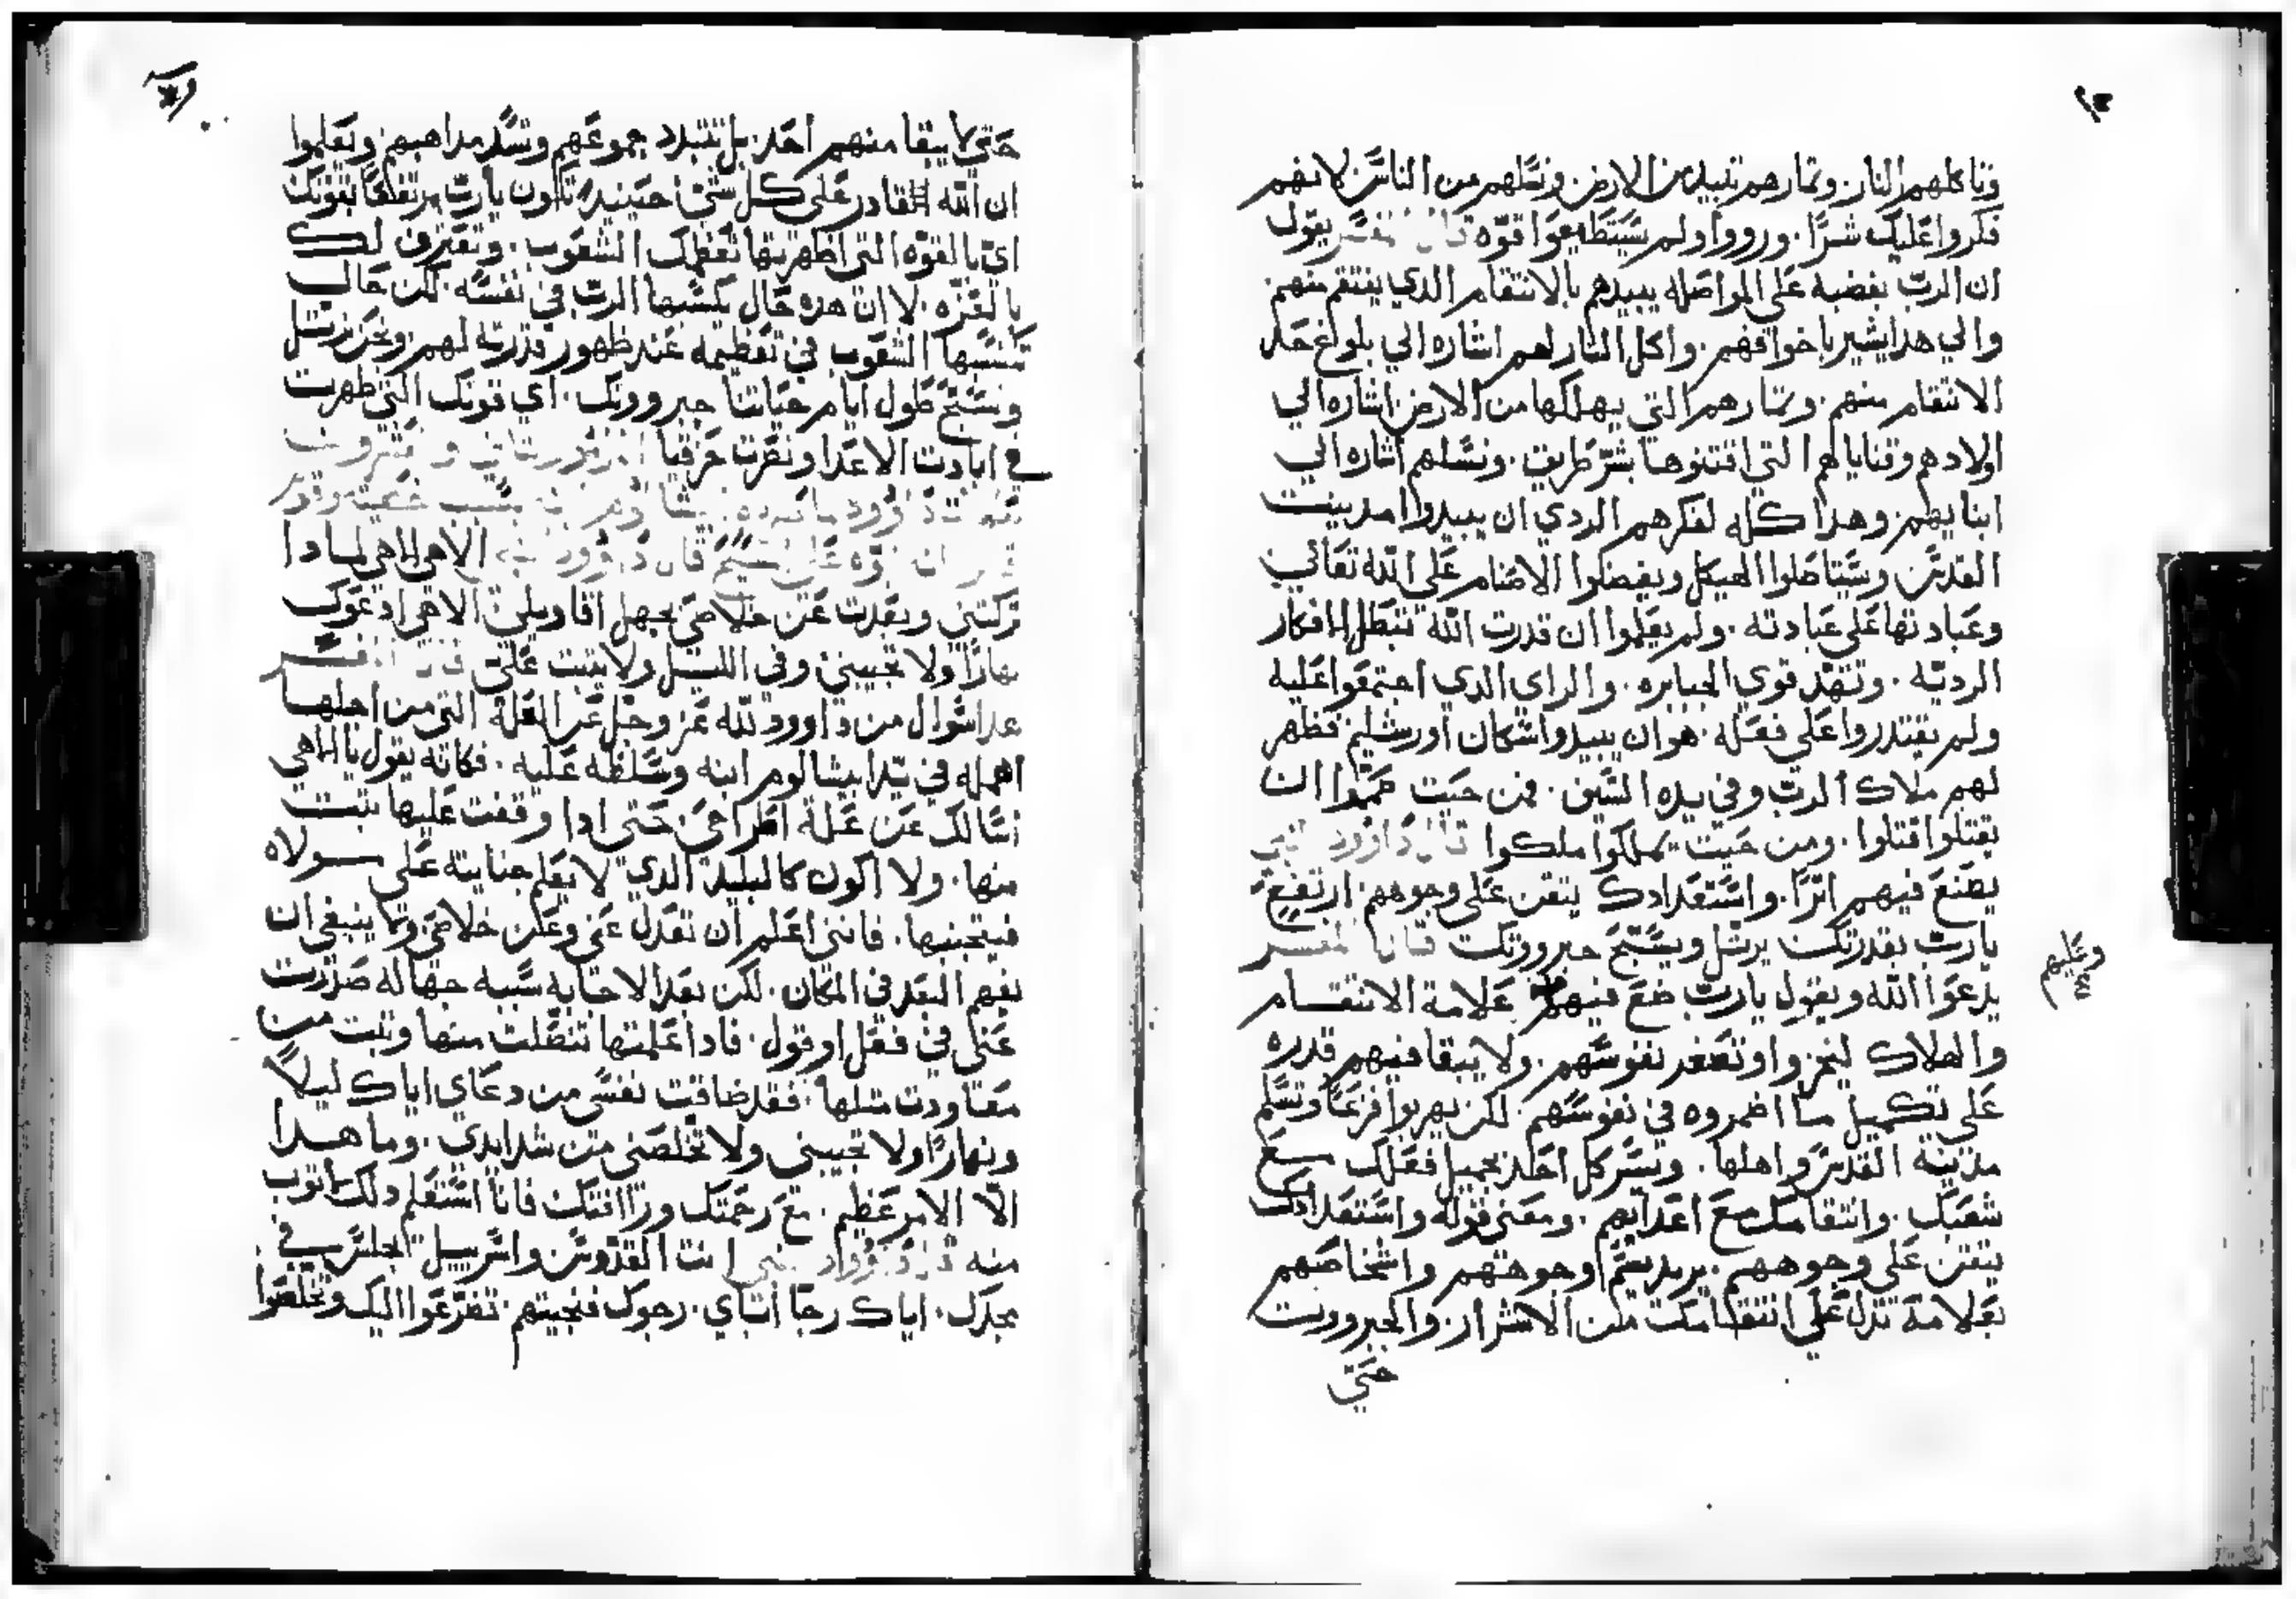 وتاكلهم النار وتمارهم تبيد من الارض ونسلهم من الناس لانهم
فكروا عليك شرا . ورووا ولم يستطيعوا قوه قال المفسر يقول
ان الرب بغضبه على المواصله يبيدهم بالانتقام الدي ينتقم منهم
والي هدا يشير باخوافهم . واكل النار لهم اشاره الي بلوغ حد
الانتقام منهم . وتمارهم التي يهلكها من الارض اشاره الي
اولادهم وقناياهم التي اقتنوها بشر طريق . ونسلهم اشاره الي
ابنايهم وهدا كله لفكرهم الردي ان يبيدوا مدينت
القدس وستاصلوا الهيكل ويفضلوا الاصنام على الله تعالي
وعبادتها على عبادته . ولم يعلموا ان قدرت الله تبطل الافكار
الرديه . وتهد قوي الجبابره . والراي الدي اجتمعوا عليه
ولم يقتدروا على فعله . هو ان يبيدوا سكان اورشليم فظهر
لهم ملاك الرب وفي يده السيف . فمن حيت هموا ان
يقتلوا قتلوا . ومن حيت يملكوا ملكوا قال داوود النبي
يصنع فيهم اترا . واستعدادك يتقن على وجوههم . ارتفع
يارب بقدرتك نرتل ونسبح جبروتك قال المفسر
يدعوا الله ويقول يارب ضع فيهم علامة الانتقام
وعليهم
والهلاك لينحزوا وتصغر نفوسهم . ولا يبقا فيهم قدره
على تكميل ما اضمروه في نفوسهم . لكن يهربوا فزعا وتسلم
مدينة القدس واهلها . ويسر كل احد بجميل فعلك مع
شعبك . وانتقامك مع اعدايهم . ومعنى قوله واستعدادك
يتقن على وجوههم . يريد يسم وجوههم واشخاصهم
بعلامة تدل على انتقامك من الاشرار . والجبروت
حتي
حتي لا يبقا منهم احد . بل تتبدد جموعهم وتسد مداهبهم ويعلموا
ان الله القادر على كل شي حينيد تكون يارب مرتفعا بقوتك
اي بالقوه التي اظهرتها تعظمك الشعوب . وتعترف لك
بالعزه . لا ان هده حال يكسبها الرب في نفسه . لكن حال
تكسبها الشعوب في تعظيمه عند ظهور قدرته لهم ونحن نرتل
ونسبح طول ايام حياتنا جبروتك . اي قوتك التي ظهرت
في ابادت الاعدا ونصرت حزقيا
الاهي الاهي لمادا
تركتني وبعدت عن خلاصي بجهل اقاويلي الاهي ادعوك
نهارا ولا تجيبني وفي الليل ولا يتبت على قال المفسر
هدا سوال من داوود لله عز وجل عن العله التي من اجلها
اهمله في يد ابيشالوم ابنه وسلطه عليه . فكانه يقول يا الاهي
اسالك عن علة اطراحي حتى ادا وقفت عليها تبت
منها . ولا اكون كالبليد الدي لا يعلم جنايته على مولاه
فيتجنبها . فانني اعلم ان تعدل عني وعن خلاصي وما ينبغي ان
يفهم البعد في المكان . لكن بعد الاجابه سببه جهاله صدرت
عني في فعل او قول . فادا علمتها تنصلت منها وتبت من
معاودت متلها . فقد ضاقت نفسي من دعاي اياك ليلا
ونهارا ولا تجيبني ولا تخلصني من شدايدي . وما هدا
الا الامر عظيم . مع رحمتك ورافتك فانا استعلم دلك اتوب
منه قال داوود النبي انت القدوس واسريل تجلس في
مجدك . اياك رجا اباي . رجوك فنجيتهم . تضرعوا اليك وتخلصوا